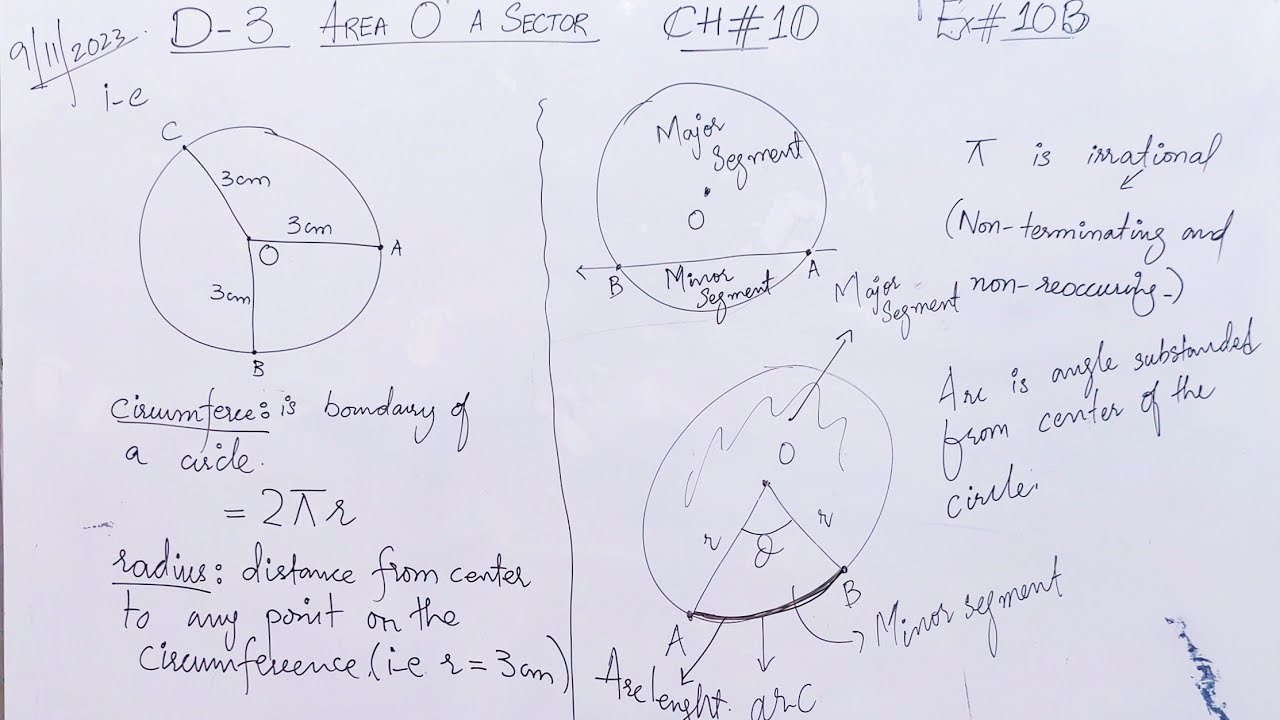 9/11/2023.
D-3 AREA O A SECTOR CH#10 Ex#10B
i-e
C
3cm
3cm
A
O
3cm
B
circumferce: is boundary of
a circle.
= 2πr
radius: distance from center
to any point on the
circumference (i-e r = 3cm)
Major
Segment
O
B
Minor
Segment
A
π is irrational
(Non-terminating and
non-reoccuring-)
Major
Segment
O
r
r
θ
A
B
Arc lenght.
arc
Minor segment
Arc is angle substanded
from center of the
circle.